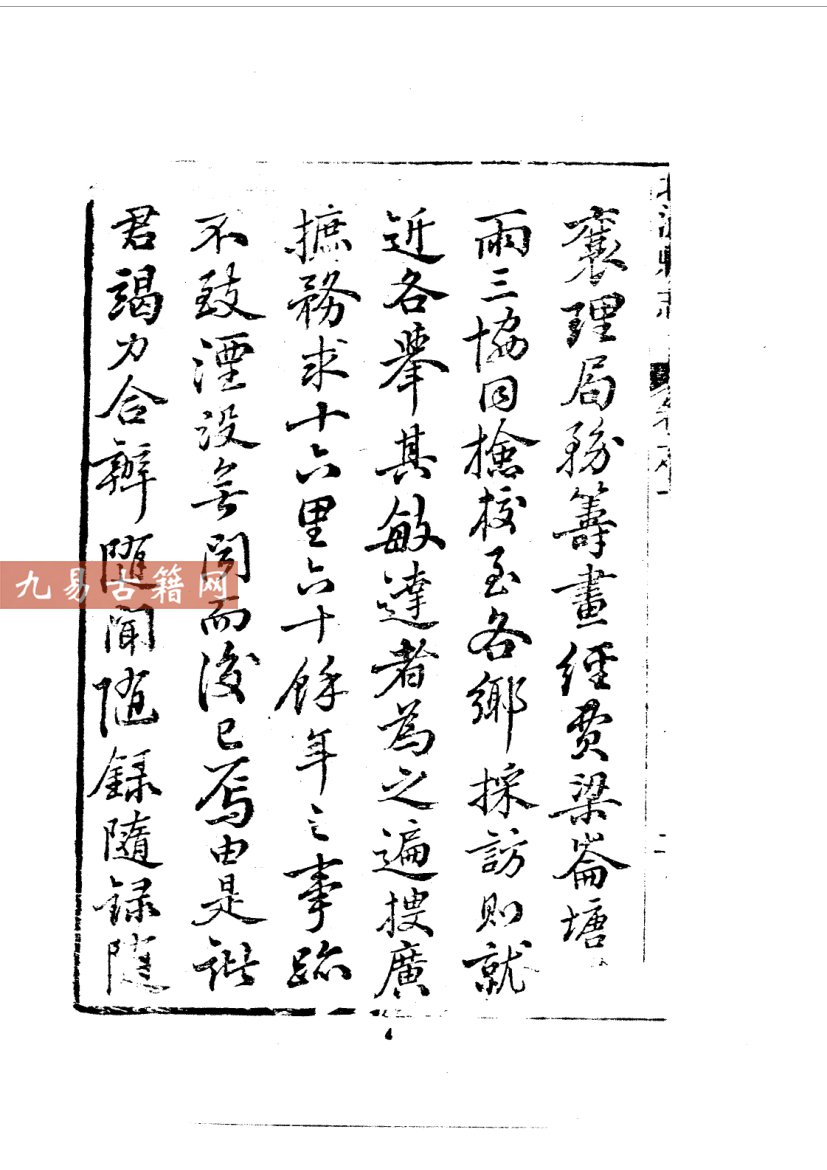 襄理局務籌畫經費梁崙塘
雨三協同檢校至各鄉採訪則就
近各舉其敏達者為之遍搜廣
摭務求十六里六十餘年之事跡
不致湮沒無聞而後已焉由是諸
君竭力合辦隨聞隨錄隨錄隨
九易古籍网